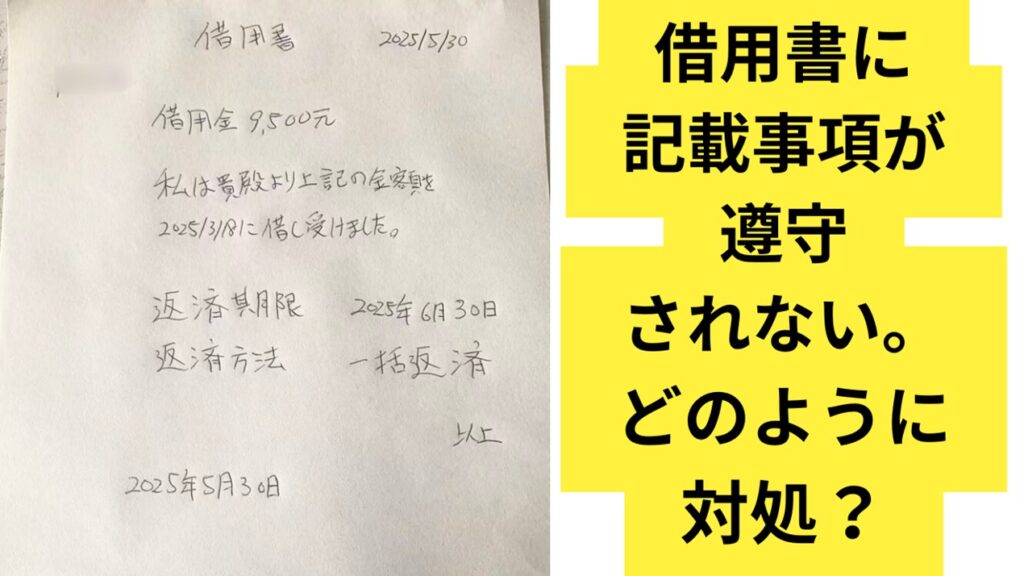 借用書 2025/5/30
借用金 9,500元
私は貴殿より上記の金額を
2025/3/18に借し受けました。
返済期限 2025年6月30日
返済方法 一括返済
以上
2025年5月30日
借用書に
記載事項が
遵守
されない。
どのように
対処？